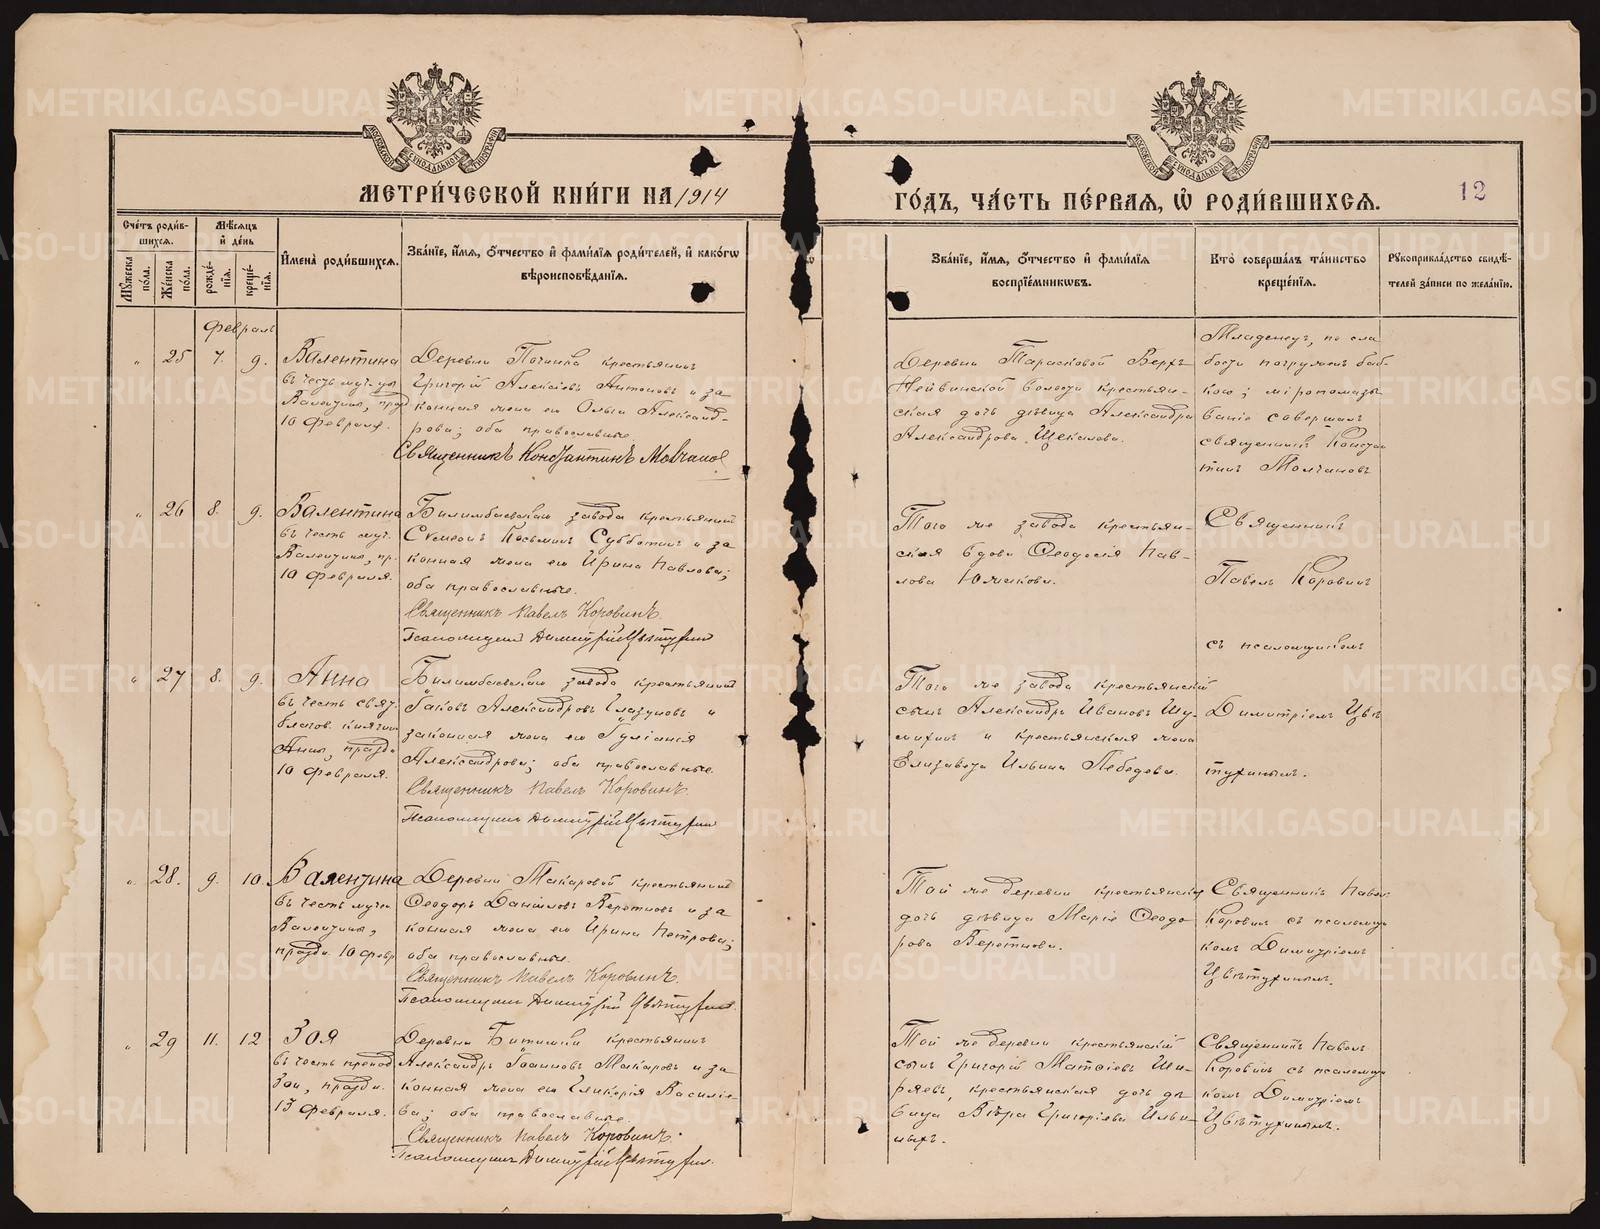 МЕТРИ́ЧЕСКОЙ КНИ́ГИ НА 1914
ГО́ДЪ, ЧА́СТЬ ПЕ́РВАЯ, Ѽ РОДИ́ВШИХСЯ.
12
Сче́тъ роди́в-
шихся.
Мѣ́сяцъ
и де́нь
Му́жеска по́ла.
Же́нска по́ла.
рожде́-
нїя.
креще́-
нїя.
Имена̀ роди́вшихся.
Зва́нїе, и́мя, о́тчество и фами́лїя роди́телей, и како́гѡ
вѣроисповѣ́данїя.
Зва́нїе, и́мя, о́тчество и фами́лїя
воспрїе́мникѡвъ.
Кто̀ соверша́лъ та́инство
креще́нїя.
Рꙋкоприкла́дство свидѣ́-
телей за́писи по жела́нїю.
Февраль
" 25 7. 9. Валентина
въ честь муч-цы
Валентины, празд
10 Февраля.
Деревни Починка крестьянинъ
Григорій Алексѣевъ Антоновъ и за
конная жена его Ольга Александ-
рова; оба православные.
Священникъ Константинъ Молчанов
Деревни Тарасковой Верхъ
Нейвинской волости крестьян-
ская дочь дѣвица Александра
Александрова Щекалева.
Младенец, по сла
бости погружен баб-
кою; мѵропомаза
ваніе совершалъ
священникъ Констан
тинъ Молчановъ
" 26 8. 9. Валентина
въ честь муч.
Валентины, пр.
10 Февраля.
Билимбаевскаго завода крестьянинъ
Сѵмеонъ Косьминъ Субботинъ и за
конная жена его Ирина Павлова;
оба православные.
Священникъ Павелъ Коровинъ.
Псаломщикъ Димитрій Цвѣтухин
Того же завода крестьян-
ская вдова Ѳеодосія Пав-
лова Южакова.
Священникъ
Павелъ Коровинъ
съ псаломщикомъ
" 27 8. 9. Анна
въ честь свят.
благов. княгини
Анны, празд.
10 Февраля.
Билимбаевскаго завода крестьянинъ
Іаковъ Александровъ Глазуновъ и
законная жена его Іуліанія
Александрова; оба православные.
Священникъ Павелъ Коровинъ.
Псаломщикъ Димитрій Цвѣтухин
Того же завода крестьянскій
сынъ Александръ Ивановъ Шу-
михинъ и крестьянская жена
Елизавета Ильина Лебедева.
Димитріемъ Цвѣ
тухинымъ.
" 28. 9. 10. Валентина
въ честь мучен.
Валентины,
праздн. 10 Февр
Деревни Макаровой крестьянинъ
Ѳеодоръ Даніиловъ Веретновъ и за
конная жена его Ирина Петрова;
оба православные.
Священникъ Павелъ Коровинъ.
Псаломщикъ Димитрій Цвѣтухин.
Той же деревни крестьянская
дочь дѣвица Марія Ѳеодо-
рова Веретнова.
Священникъ Павел
Коровинъ съ псаломщи
комъ Димитріемъ
Цвѣтухинымъ.
" 29 11. 12 Зоя
въ честь препод
Зои, праздн.
13 Февраля.
Деревни Битимки крестьянинъ
Александръ Іоанновъ Макаровъ и за
конная жена его Гликерія Василіе-
ва; оба православные.
Священникъ Павелъ Коровинъ.
Псаломщикъ Димитрій Цвѣтухин.
Той же деревни крестьянскій
сынъ Григорій Матѳіевъ Ши-
ряевъ, крестьянская дочь дѣ
вица Вѣра Григоріева Ильи-
ныхъ.
Священникъ Павелъ
Коровинъ съ псаломщи
комъ Димитріемъ
Цвѣтухинымъ.
METRIKI.GASO-URAL.RU